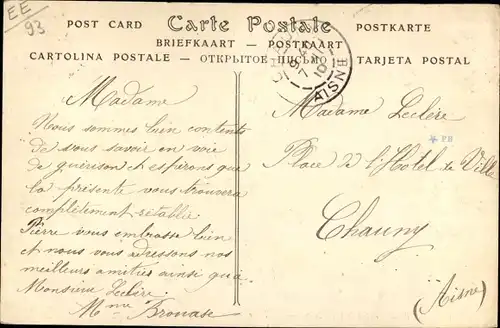 EE
93
POST CARD Carte Postale POSTKARTE
BRIEFKAART — POSTKAART
CARTOLINA POSTALE — ОТКРЫТОЕ ПИСЬМО — TARJETA POSTAL
AISNE
Madame
Nous sommes bien contents
de vous savoir en voie
de guérison et espérons que
la présente vous trouvera
complètement rétablie
Pierre vous embrasse bien
et nous vous adressons nos
meilleurs amitiés ainsi qu'à
Monsieur Leclère.
Mme Brouase
Madame Leclère
PB
Place de l'Hôtel de Ville
Chauny
(Aisne)